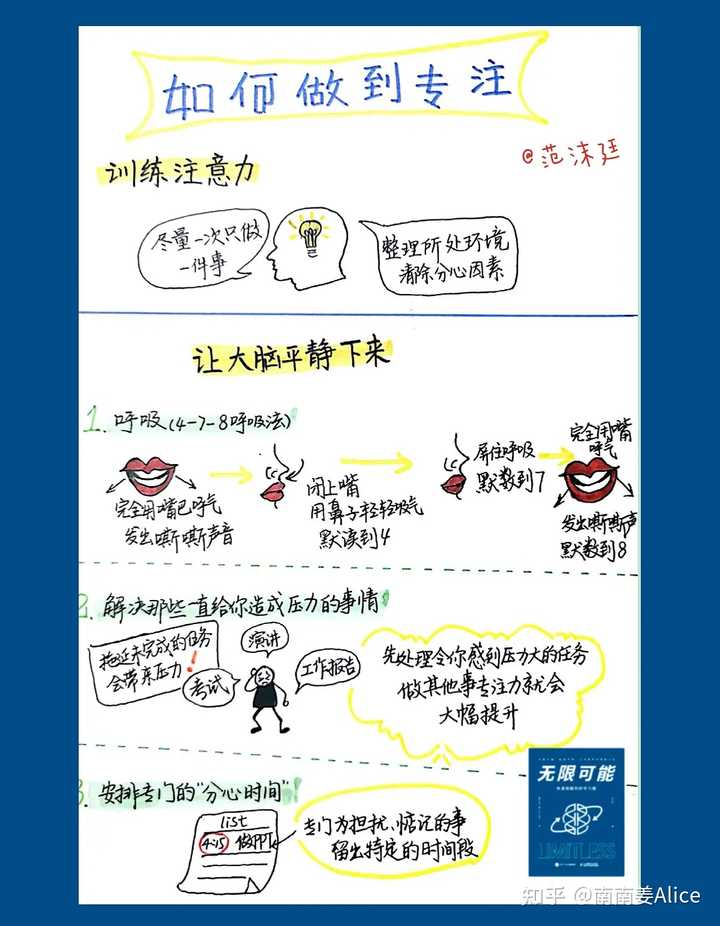 如何做到专注
@范沫廷
训练注意力
尽量一次只做
一件事
整理所处环境
清除分心因素
让大脑平静下来
1. 呼吸(4-7-8呼吸法)
完全用嘴巴呼气
发出嘶嘶声音
闭上嘴
用鼻子轻轻吸气
默读到4
屏住呼吸
默数到7
完全用嘴
呼气
发出嘶嘶声
默数到8
2. 解决那些一直给你造成压力的事情
拖延未完成的任务
会带来压力!
考试
演讲
工作报告
先处理令你感到压力大的任务
做其他事专注力就会
大幅提升
3. 安排专门的“分心时间”
list
4:15 做PPT
专门为担扰、惦记的事
留出特定的时间段
无限可能
LIMITLESS
知乎 @南南姜Alice